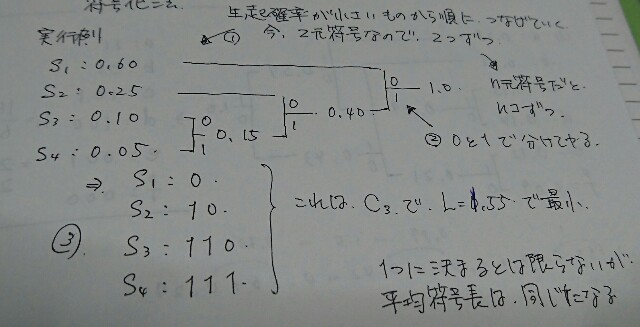 符号化
実行例
① 生起確率が小さいものから順に、つなげていく
今、2元符号なので、2つずつ
n元符号だと、
nコずつ。
S₁ : 0.60
S₂ : 0.25
S₃ : 0.10
S₄ : 0.05
0
1
0.15
0
1
0.40
0
1
1.0
② 0と1で分けてやる。
③
⇒ S₁ : 0.
S₂ : 10.
S₃ : 110.
S₄ : 111.
これは、C₃で、L=1.55で最小。
1つに決まるとは限らないが
平均符号長は、同じになる